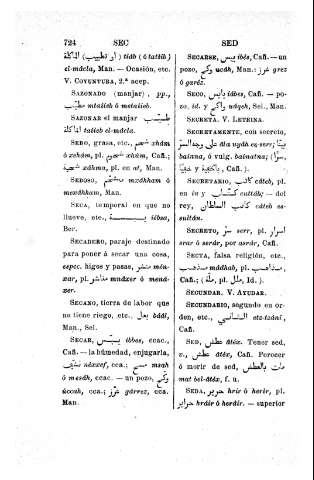 724 SEC SED
تطييب (أو تطبيب) tiáb (ó tatiib)
el-máela, Man. — Ocasión, etc.
V. COYUNTURA, 2.ª acep.
SAZONADO (manjar), pp.,
mtaiieb ó metaiieb.
SAZONAR el manjar
taiieb el-máela.
SEBO, grasa, etc., شحم xham
ó xehám, pl. شحوم xhám, Cañ.;
xáhma, pl. en at, Man.
SEBOSO, mxahham ó
mexahham, Man.
SECA, temporal en que no
llueve, etc., يبسة iibsa,
Ber.
SECADERO, paraje destinado
para poner á secar una cosa,
espec. higos y pasas, منشر mén-
xar, pl. مناشر mnáxer ó mená-
xer.
SECANO, tierra de labor que
no tiene riego, etc., بعل báâl,
Man., Sel.
SECAR, يبّس iibes, ccac.,
Cañ. — la húmedad, enjugarla,
نشّف náxxef, cca.; مسح msah
ó mesáh, ccac. — un pozo,
úccah, cca.; غرّز gárrez, cca.
Man.
SECARSE, يبس iibés, Cañ. — un
pozo, وكح ucáh, Man.: غرز grez
ó garéz.
SECO, يابس iábes, Cañ. — po-
zo, id. y واكح uáqeh, Sel., Man.
SECRETA. V. LETRINA.
SECRETAMENTE, con secreto,
على وجه السرّ âla ugáh es-serr;
baiana, ó vulg. bainatna;
Cañ.
SECRETARIO, كاتب cáteb, pl.
en in y كتّاب cuttáb; — del
rey, كاتب السلطان cáteb es-
sultán.
SECRETO, سرّ serr, pl. اسرار
srar ó serár, por asrár, Cañ.
SECTA, falsa religión, etc.,
مذهب mádhab, pl. مذاهب,
Cañ.; (ملة, pl. ملل, Id.).
SECUNDAR. V. AYUDAR.
SECUNDARIO, segundo en or-
den, etc., الثاني etz-tzáni,
Cañ.
SED, عطش âtéx. Tener sed,
v., عطش âtéx, Cañ. Perecer
ó morir de sed, مات بالعطش
mat bel-âtéx, f. u.
SEDA, حرير hrir ó herír, pl.
حراير hráir ó heráir. — superior